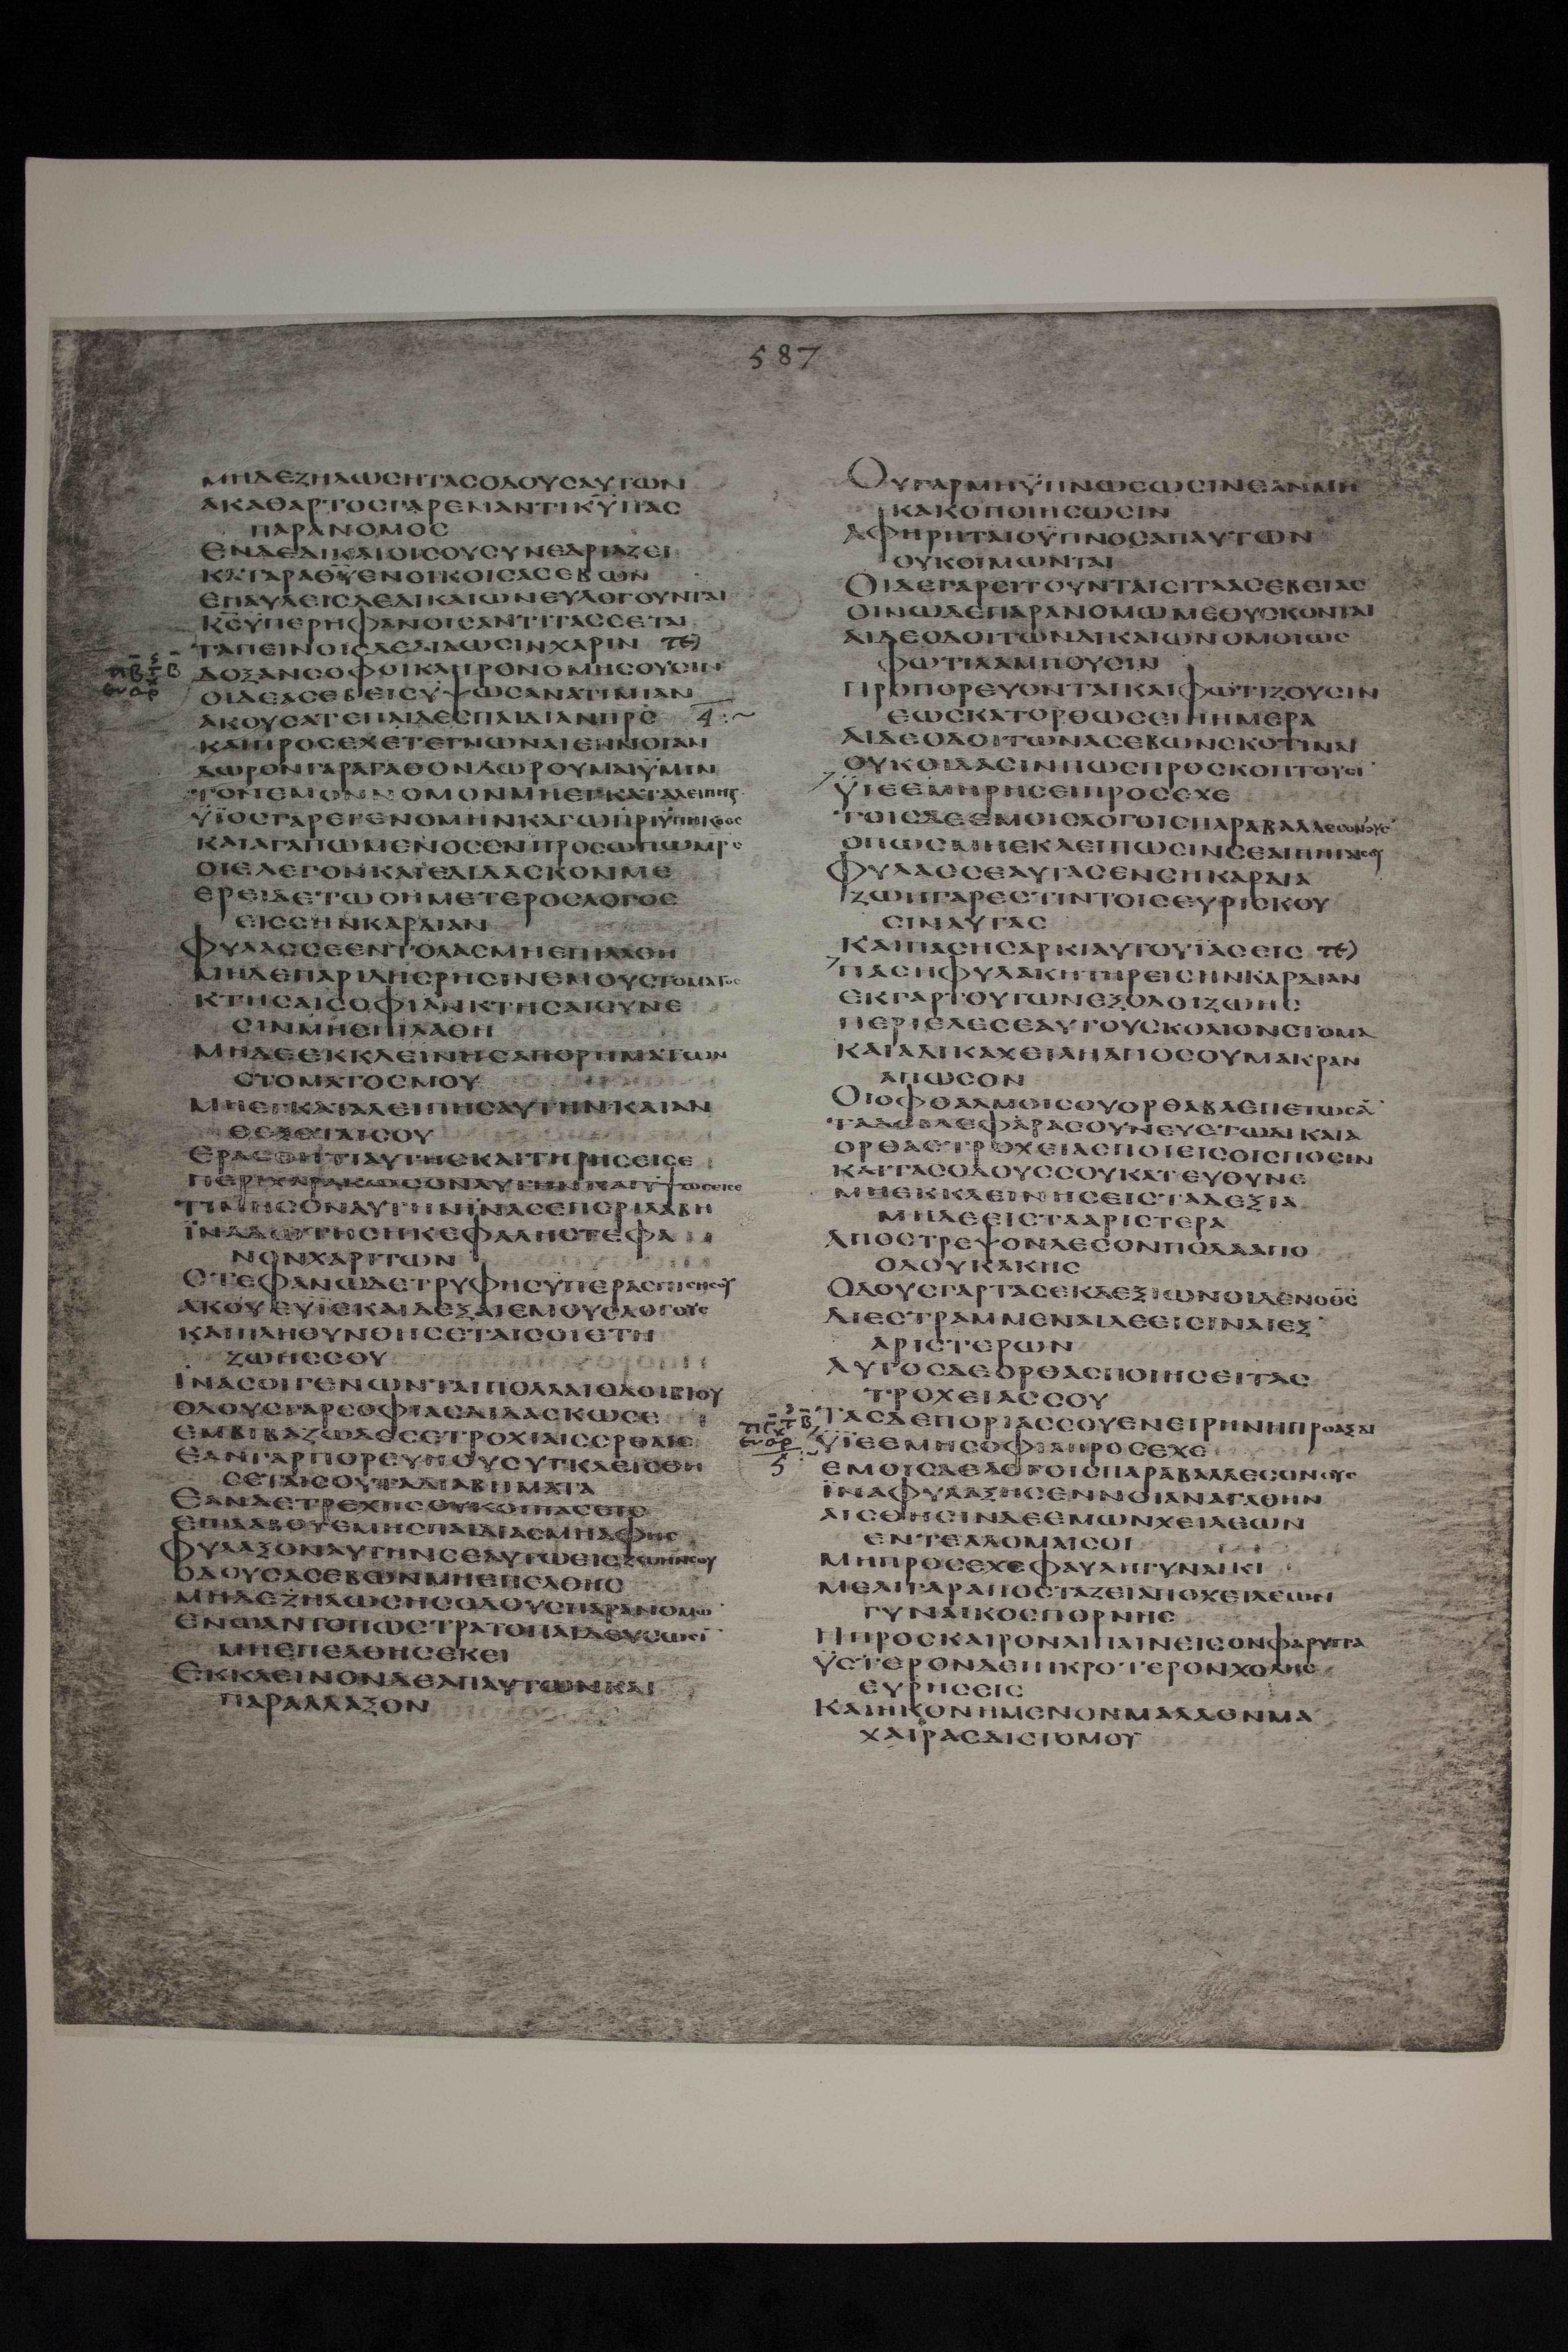 587
ΜΗΔΕΖΗΛΩСΗΤΑСΟΔΟΥСΑΥΤΩΝ
ΑΚΑΘΑΡΤΟСΓΑΡΕΝΑΝΤΙΚΥΠΑС
ΠΑΡΑΝΟΜΟС
ΕΝΔΕΔΙΚΑΙΟΙСΟΥСΥΝΕΔΡΙΑΖΕΙ
ΚΑΤΑΡΑΘΥΕΝΟΙΚΟΙСΑСΕΒΩΝ
ΕΠΑΥΛΕΙСΔΕΔΙΚΑΙΩΝΕΥΛΟΓΟΥΝΤΑΙ
ΚСΫΠΕΡΗΦΑΝΟΙСΑΝΤΙΤΑССΕΤΑΙ
ΤΑΠΕΙΝΟΙСΔΕΔΙΔΩСΙΝΧΑΡΙΝ τε)
ΔΟΞΑΝСΟΦΟΙΚΛΗΡΟΝΟΜΗСΟΥСΙΝ
ΟΙΔΕΑСΕΒΕΙСΥΨΩСΑΝΑΤΙΜΙΑΝ
ΑΚΟΥСΑΤΕΠΑΙΔΕСΠΑΙΔΙΑΝΠΡС 4:~
ΚΑΙΠΡΟСΕΧΕΤΕΓΝΩΝΑΙΕΝΝΟΙΑΝ
ΔΩΡΟΝΓΑΡΑΓΑΘΟΝΔΩΡΟΥΜΑΙΫΜΙΝ
ΤΟΝΕΜΟΝΝΟΜΟΝΜΗΕΓΚΑΤΑΛΕΙΠΗΤΕ
ΫΪΟСΓΑΡΕΓΕΝΟΜΗΝΚΑΓΩΠΡΙΫΠΗΚΟΟС
ΚΑΙΑΓΑΠΩΜΕΝΟСΕΝΠΡΟСΩΠΩΜΡС
ΟΙΕΛΕΓΟΝΚΑΙΕΔΙΔΑСΚΟΝΜΕ
ΕΡΕΙΔΕΤΩΟΗΜΕΤΕΡΟСΛΟΓΟС
ΕΙССΗΝΚΑΡΔΙΑΝ
ΦΥΛΑССΕΕΝΤΟΛΑСΜΗΕΠΙΛΑΘΗ
ΜΗΔΕΠΑΡΙΔΗСΡΗСΙΝΕΜΟΥСΤΟΜΑΤΟС
ΚΤΗСΑΙСΟΦΙΑΝΚΤΗСΑΙСΥΝΕ
СΙΝΜΗΕΠΙΛΑΘΗ
ΜΗΔΕΕΚΚΛΕΙΝΗСΑΠΟΡΗΜΑΤΩΝ
СΤΟΜΑΤΟСΜΟΥ
ΜΗΕΓΚΑΤΑΛΕΙΠΗСΑΥΤΗΝΚΑΙΑΝ
ΘΕΞΕΤΑΙСΟΥ
ΕΡΑСΘΗΤΙΑΥΤΗСΚΑΙΤΗΡΗСΕΙСΕ
ΠΕΡΙΧΑΡΑΚΩСΟΝΑΥΤΗΝΚΑΙΥΨΩСΕΙСΕ
ΤΙΜΗСΟΝΑΥΤΗΝΪΝΑСΕΠΕΡΙΛΑΒΗ
ΪΝΑΔΩΤΗСΗΚΕΦΑΛΗСΤΕΦΑ
ΝΟΝΧΑΡΙΤΩΝ
СΤΕΦΑΝΩΔΕΤΡΥΦΗСΫΠΕΡΑСΠΙСΗСΟΥ
ΑΚΟΥΕΥΪΕΚΑΙΔΕΞΑΙΕΜΟΥСΛΟΓΟΥС
ΚΑΙΠΛΗΘΥΝΘΗСΕΤΑΙСΟΙΕΤΗ
ΖΩΗССΟΥ
ΙΝΑСΟΙΓΕΝΩΝΤΑΙΠΟΛΛΑΙΟΔΟΙΒΙΟΥ
ΟΔΟΥСΓΑΡСΟΦΙΑСΔΙΔΑСΚΩСΕ
ΕΜΒΙΒΑΖΩΔΕСΕΤΡΟΧΙΑΙСΟΡΘΑΙС
ΕΑΝΓΑΡΠΟΡΕΥΗΟΥСΥΓΚΛΕΙСΘΗ
СΕΤΑΙСΟΥΤΑΔΙΑΒΗΜΑΤΑ
ΕΑΝΔΕΤΡΕΧΗСΟΥΚΟΠΙΑСΕΙС
ΕΠΙΛΑΒΟΥΕΜΗСΠΑΙΔΙΑСΜΗΑΦΗС
ΦΥΛΑΞΟΝΑΥΤΗΝСΕΑΥΤΩΕΙСΖΩΗΝСΟΥ
ΟΔΟΥСΑСΕΒΩΝΜΗΕΠΕΛΘΗС
ΜΗΔΕΖΗΛΩСΗСΟΔΟΥСΠΑΡΑΝΟΜΩ
ΕΝΩΑΝΤΟΠΩСΤΡΑΤΟΠΑΙΔΕΥСΩСΙ
ΜΗΕΠΕΛΘΗСΕΚΕΙ
ΕΚΚΛΕΙΝΟΝΔΕΑΠΑΥΤΩΝΚΑΙ
ΠΑΡΑΛΛΑΞΟΝ
ΟΥΓΑΡΜΗΫΠΝΩСΩСΙΝΕΑΝΜΗ
ΚΑΚΟΠΟΙΗСΩСΙΝ
ΑΦΗΡΗΤΑΙΟΫΠΝΟСΑΠΑΥΤΩΝ
ΟΥΚΟΙΜΩΝΤΑΙ
ΟΙΔΕΓΑΡСΙΤΟΥΝΤΑΙСΙΤΑΑСΕΒΕΙΑС
ΟΙΝΩΔΕΠΑΡΑΝΟΜΩΜΕΘΥСΚΟΝΤΑΙ
ΑΙΔΕΟΔΟΙΤΩΝΔΙΚΑΙΩΝΟΜΟΙΩС
ΦΩΤΙΛΑΜΠΟΥСΙΝ
ΠΡΟΠΟΡΕΥΟΝΤΑΙΚΑΙΦΩΤΙΖΟΥСΙΝ
ΕΩСΚΑΤΟΡΘΩСΕΙΗΗΜΕΡΑ
ΑΙΔΕΟΔΟΙΤΩΝΑСΕΒΩΝСΚΟΤΙΝΑΙ
ΟΥΚΟΙΔΑСΙΝΠΩСΠΡΟСΚΟΠΤΟΥСΙ
ΫΪΕΕΜΗΡΗСΕΙΠΡΟСΕΧΕ
ΤΟΙСΔΕΕΜΟΙСΛΟΓΟΙСΠΑΡΑΒΑΛΛΕСΟΝΟΥС
ΟΠΩСΜΗΕΚΛΕΙΠΩСΙΝСΕΑΙΠΗΓΑΙСΟΥ
ΦΥΛΑССΕΑΥΤΑСΕΝСΗΚΑΡΔΙΑ
ΖΩΗΓΑΡΕСΤΙΝΤΟΙСΕΥΡΙСΚΟΥ
СΙΝΑΥΤΑС
ΚΑΙΠΑСΗСΑΡΚΙΑΥΤΟΥΪΑСΕΙС τε)
ΠΑСΗΦΥΛΑΚΗΤΗΡΕΙСΗΝΚΑΡΔΙΑΝ
ΕΚΓΑΡΤΟΥΤΩΝΕΞΟΔΟΙΖΩΗС
ΠΕΡΙΕΛΕСΕΑΥΤΟΥСΚΟΛΙΟΝСΤΟΜΑ
ΚΑΙΑΔΙΚΑΧΕΙΛΗΑΠΟСΟΥΜΑΚΡΑΝ
ΑΠΩСΟΝ
ΟΙΟΦΘΑΛΜΟΙСΟΥΟΡΘΑΒΛΕΠΕΤΩСΑ
ΤΑΔΕΒΛΕΦΑΡΑСΟΥΝΕΥΕΤΩΔΙΚΑΙΑ
ΟΡΘΑСΤΡΟΧΕΙΑСΠΟΙΕΙСΟΙСΠΟСΙΝ
ΚΑΙΤΑСΟΔΟΥССΟΥΚΑΤΕΥΘΥΝΕ
ΜΗΕΚΚΛΕΙΝΗСΕΙСΤΑΔΕΞΙΑ
ΜΗΔΕΕΙСΤΑΑΡΙСΤΕΡΑ
ΑΠΟСΤΡΕΨΟΝΔΕСΟΝΠΟΔΑΑΠΟ
ΟΔΟΥΚΑΚΗС
ΟΔΟΥСΓΑΡΤΑСΕΚΔΕΞΙΩΝΟΙΔΕΝΟΘС
ΔΙΕСΤΡΑΜΜΕΝΑΙΔΕΕΙСΙΝΑΙΕΞ
ΑΡΙСΤΕΡΩΝ
ΑΥΤΟСΔΕΟΡΘΑСΠΟΙΗСΕΙΤΑС
ΤΡΟΧΕΙΑССΟΥ
ΤΑСΔΕΠΟΡΙΑССΟΥΕΝΕΙΡΗΝΗΠΡΟΑΞΑΙ
ΫΪΕΕΜΗСΟΦΙΑΠΡΟСΕΧΕ
ΕΜΟΙСΔΕΛΟΓΟΙСΠΑΡΑΒΑΛΛΕСΟΝΟΥС
ΪΝΑΦΥΛΑΞΗСΕΝΝΟΙΑΝΑΓΑΘΗΝ
ΑΙСΘΗСΙΝΔΕΕΜΩΝΧΕΙΛΕΩΝ
ΕΝΤΕΛΛΟΜΑΙСΟΙ
ΜΗΠΡΟСΕΧΕΦΑΥΛΗΓΥΝΑΙΚΙ
ΜΕΛΙΓΑΡΑΠΟСΤΑΖΕΙΑΠΟΧΕΙΛΕΩΝ
ΓΥΝΑΙΚΟСΠΟΡΝΗС
ΗΠΡΟСΚΑΙΡΟΝΛΙΠΑΙΝΕΙСΟΝΦΑΡΥΓΓΑ
ΫСΤΕΡΟΝΔΕΠΙΚΡΟΤΕΡΟΝΧΟΛΗС
ΕΥΡΗСΕΙС
ΚΑΙΗΚΟΝΗΜΕΝΟΝΜΑΛΛΟΝΜΑ
ΧΑΙΡΑСΔΙСΤΟΜΟΥ